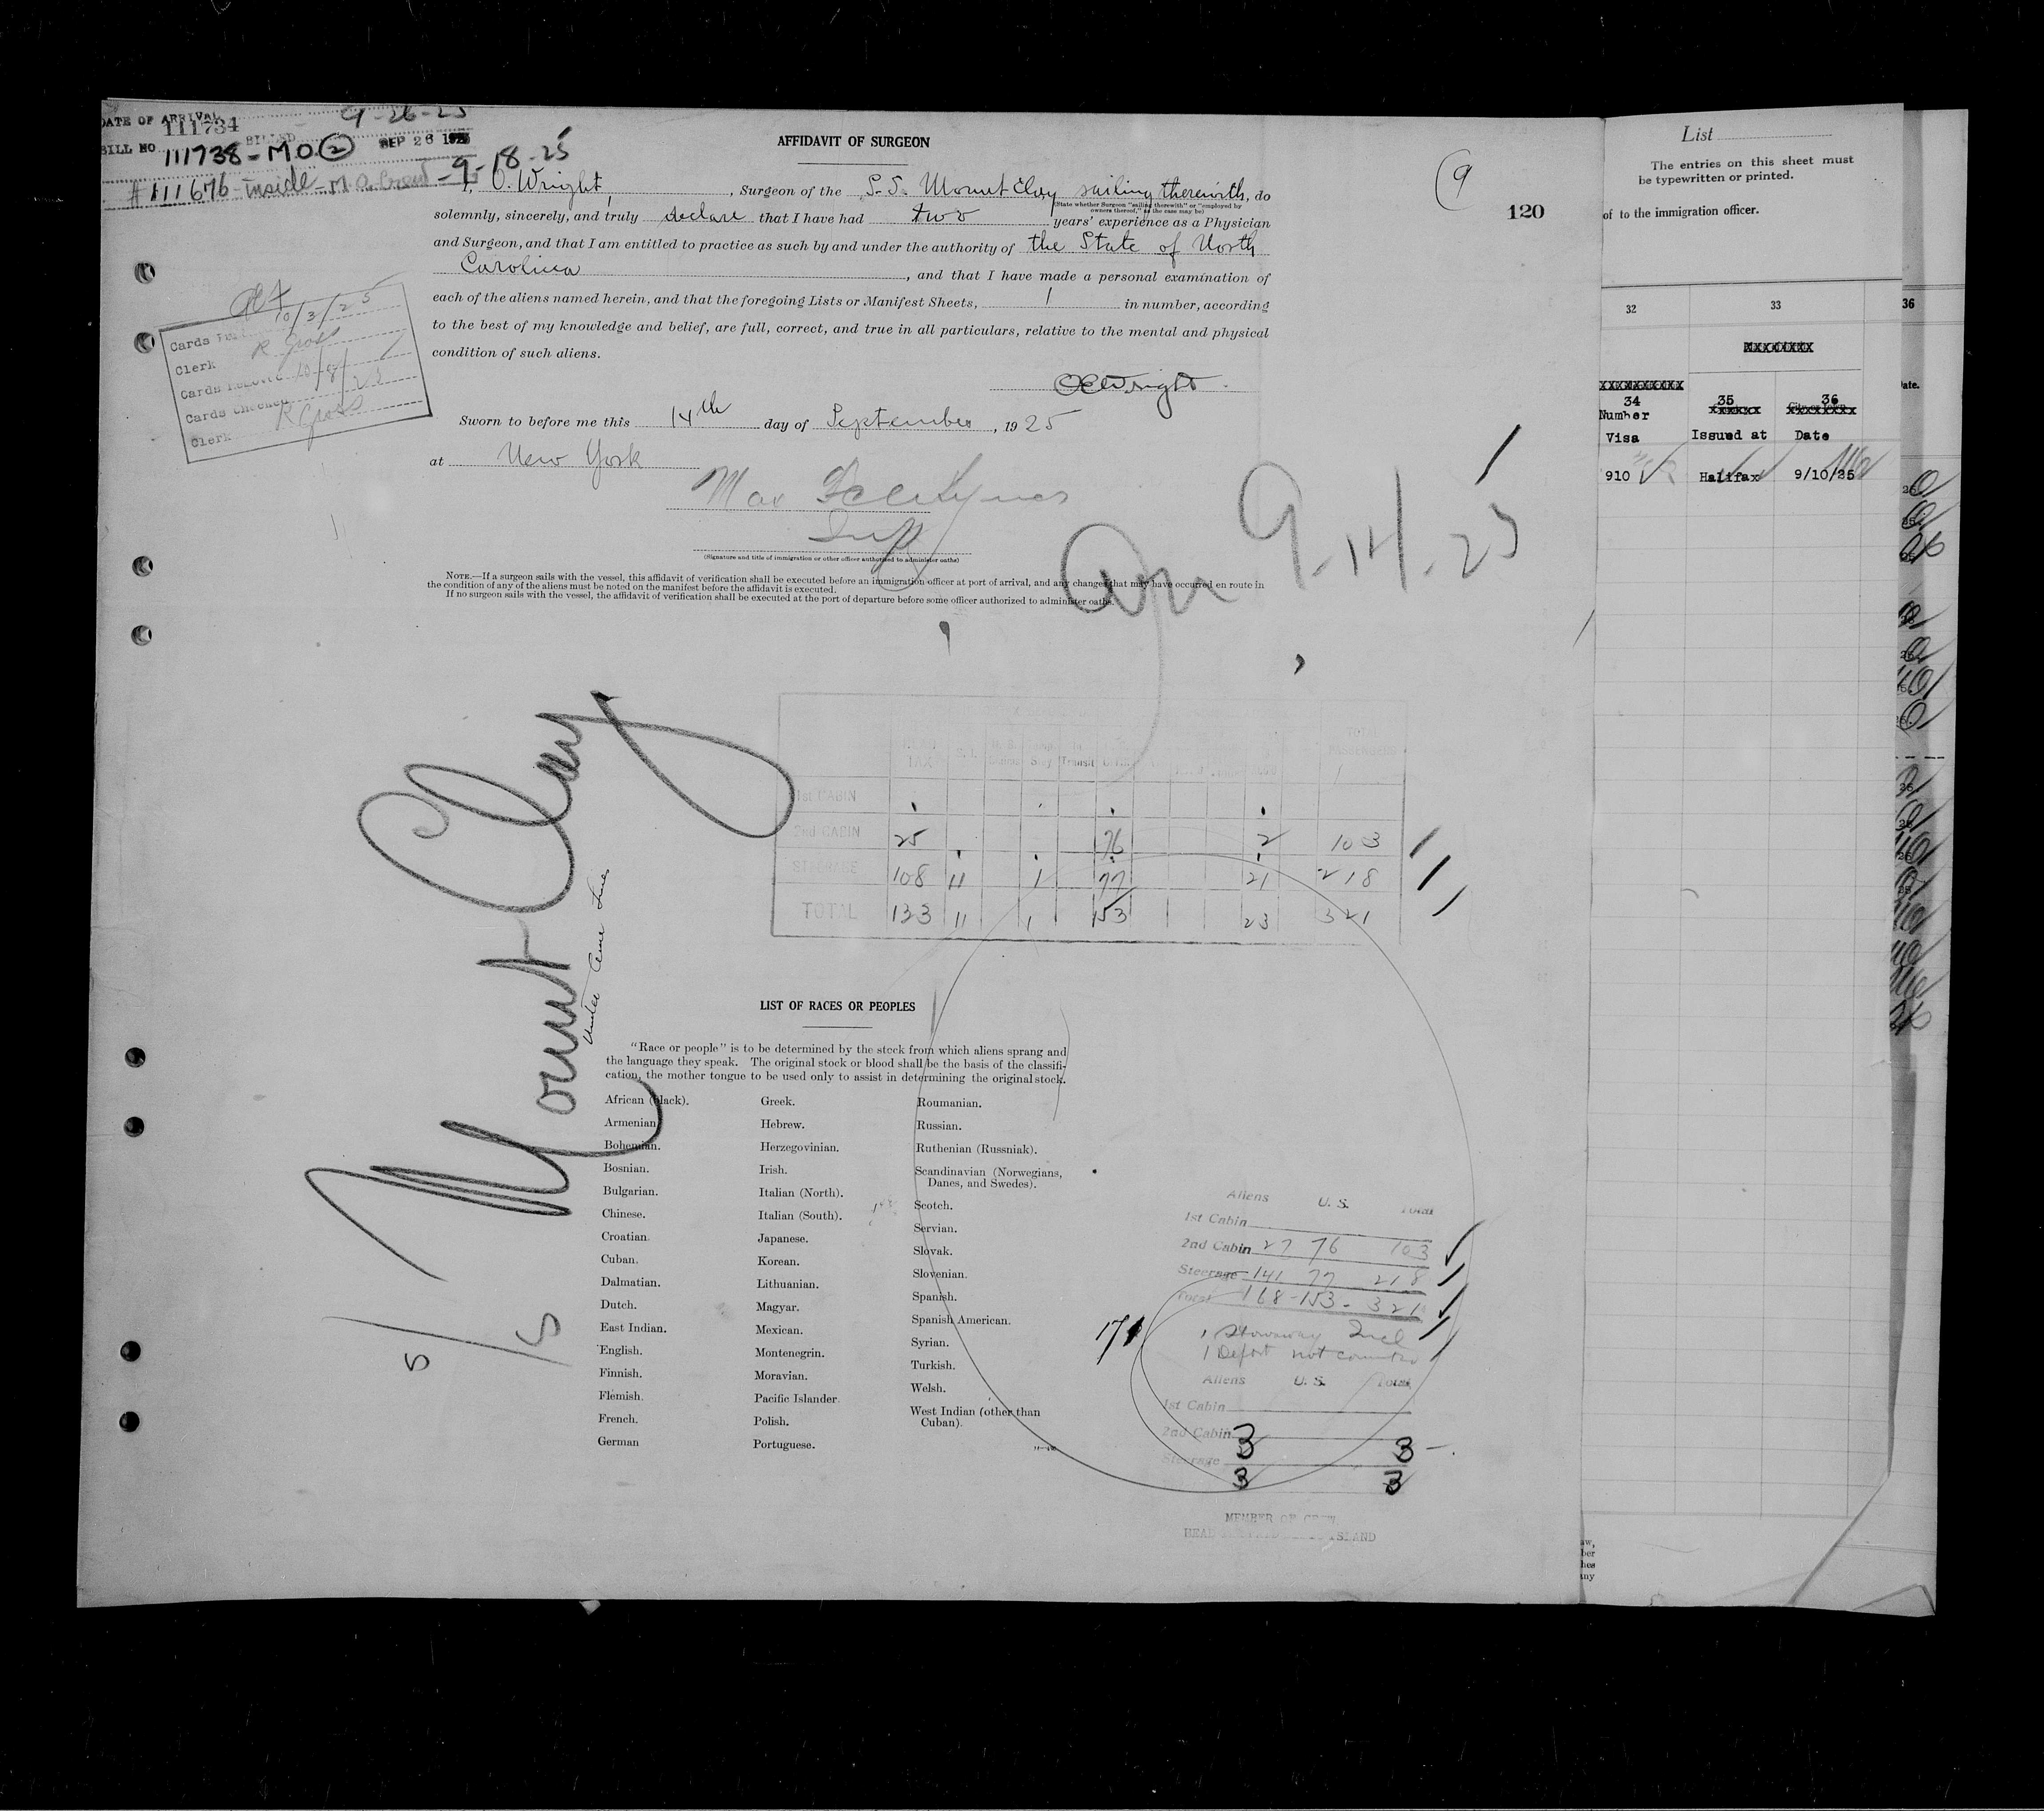 DATE OF ARRIVAL 9-26-25
111734 BILLED SEP 26
BILL NO. 111738-M.O. 2
#111676-inside-M.O. Crew-9-18-25
AFFIDAVIT OF SURGEON
9
120
I, O. Wright, Surgeon of the S.S. Mount Clay sailing therewith, do
(State whether Surgeon "sailing therewith" or "employed by
owners thereof," as the case may be)
solemnly, sincerely, and truly declare that I have had two years' experience as a Physician
and Surgeon, and that I am entitled to practice as such by and under the authority of the State of North
Carolina, and that I have made a personal examination of
each of the aliens named herein, and that the foregoing Lists or Manifest Sheets, 1 in number, according
to the best of my knowledge and belief, are full, correct, and true in all particulars, relative to the mental and physical
condition of such aliens.
10/3/25
Cards
Clerk R Gross
Cards 10/8/25
Cards Checked
Clerk R Gross
OCWright
Sworn to before me this 14th day of September, 1925
at New York
Max
Insp
(Signature and title of immigration or other officer authorized to administer oaths)
Arr 9-14-25
NOTE.—If a surgeon sails with the vessel, this affidavit of verification shall be executed before an immigration officer at port of arrival, and any changes that may have occurred en route in
the condition of any of the aliens must be noted on the manifest before the affidavit is executed.
If no surgeon sails with the vessel, the affidavit of verification shall be executed at the port of departure before some officer authorized to administer oaths.
Mount Clay
United Amer Lines
5/15
HEAD TAX S.I. Transit TOTAL PASSENGERS
1st CABIN
2nd CABIN 25 76 2 103
STEERAGE 108 11 1 77 21 218
TOTAL 133 11 1 153 23 321
LIST OF RACES OR PEOPLES
"Race or people" is to be determined by the stock from which aliens sprang and
the language they speak. The original stock or blood shall be the basis of the classifi-
cation, the mother tongue to be used only to assist in determining the original stock.
African (black).
Armenian.
Bohemian.
Bosnian.
Bulgarian.
Chinese.
Croatian.
Cuban.
Dalmatian.
Dutch.
East Indian.
English.
Finnish.
Flemish.
French.
German
Greek.
Hebrew.
Herzegovinian.
Irish.
Italian (North).
Italian (South).
Japanese.
Korean.
Lithuanian.
Magyar.
Mexican.
Montenegrin.
Moravian.
Pacific Islander.
Polish.
Portuguese.
Roumanian.
Russian.
Ruthenian (Russniak).
Scandinavian (Norwegians,
Danes, and Swedes).
Scotch.
Servian.
Slovak.
Slovenian.
Spanish.
Spanish American.
Syrian.
Turkish.
Welsh.
West Indian (other than
Cuban).
Aliens U. S. Total
1st Cabin
2nd Cabin 27 76 103
Steerage 141 77 218
Total 168-153-321
1 Stowaway Incl
1 Deport not counted
Aliens U. S. Total
1st Cabin
2nd Cabin 3 3
Steerage
3 3
MEMBER OF CREW
HEAD ISLAND
List
The entries on this sheet must
be typewritten or printed.
of to the immigration officer.
32 33 36
XXXXXXXX
XXXXXXXXXX
34 35 36
Number
Visa Issued at Date
910 Halifax 9/10/25